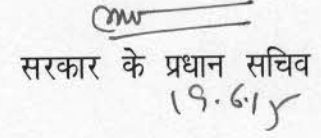 सरकार के प्रधान सचिव
19.6.15